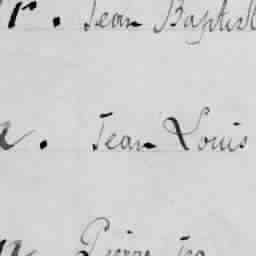 r. Jean Baptist
. Jean Louis
Pierre